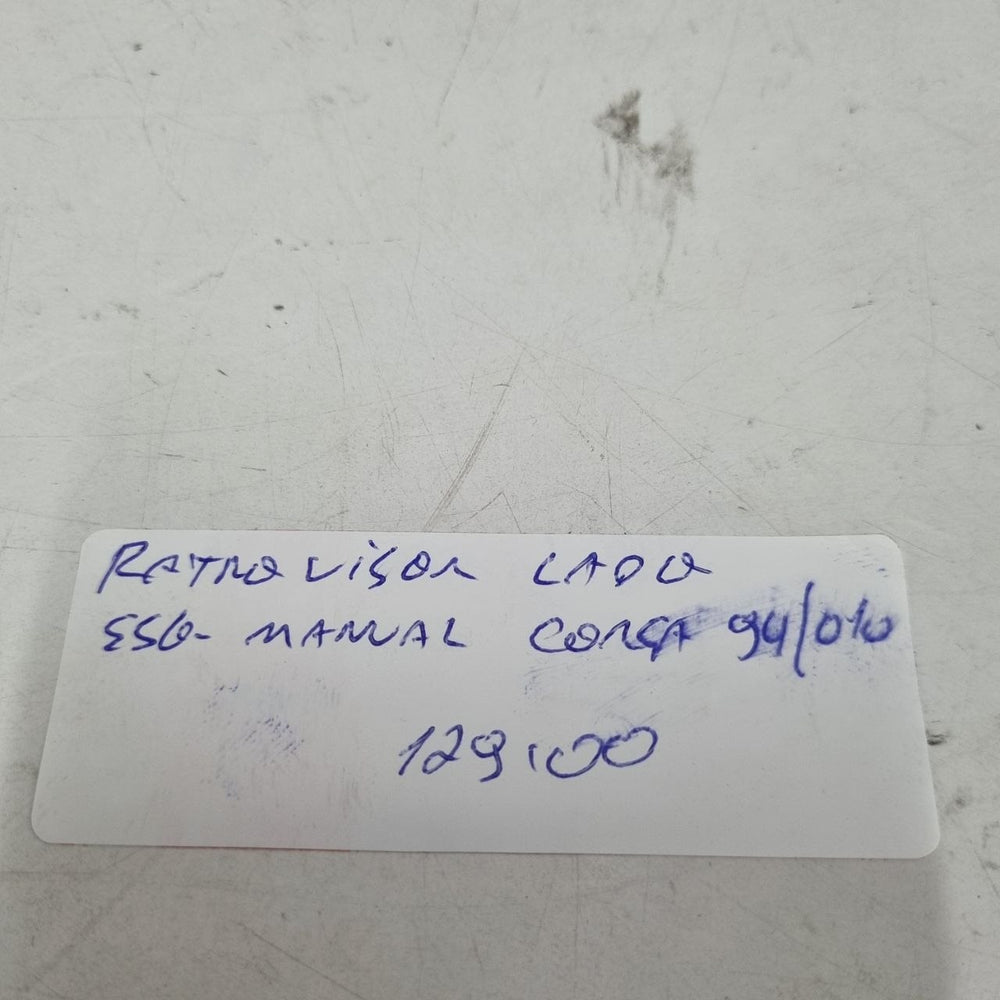 RETROVISOR LADO
ESQ- MANUAL CORSA 94/010
129,00